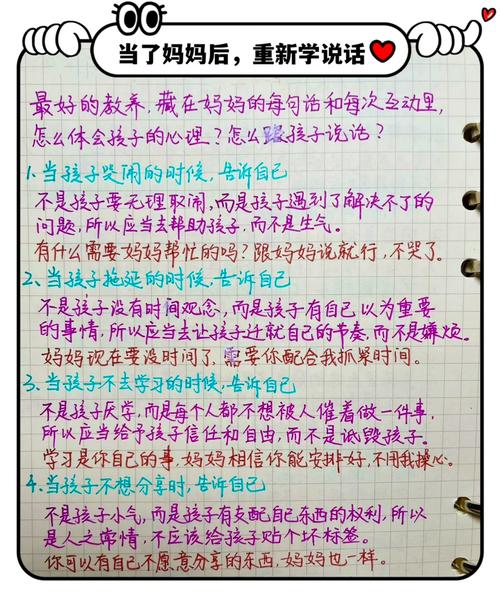 当了妈妈后，重新学说话
最好的教养，藏在妈妈的每句话和每次互动里，
怎么体会孩子的心理？怎么跟孩子说话？
1.当孩子哭闹的时候，告诉自己
不是孩子要无理取闹，而是孩子遇到了解决不了的
问题，所以应当去帮助孩子，而不是生气。
有什么需要妈妈帮忙的吗？跟妈妈说就行，不哭了。
2、当孩子拖延的时候，告诉自己
不是孩子没有时间观念，而是孩子有自己以为重要
的事情，所以应当去让孩子迁就自己的节奏，而不是嫌烦。
妈妈现在要没时间了，需要你配合我抓紧时间。
3、当孩子不去学习的时候，告诉自己
不是孩子厌学，而是每个人都不想被人催着做一件事，
所以应当给予孩子信任和自由，而不是诋毁孩子。
学习是你自己的事，妈妈相信你能安排好，不用我操心。
4、当孩子不想分享时，告诉自己
不是孩子小气，而是孩子有支配自己东西的权利，所以
是人之常情，不应该给孩子贴个坏标签。
你可以有自己不愿意分享的东西，妈妈也一样。